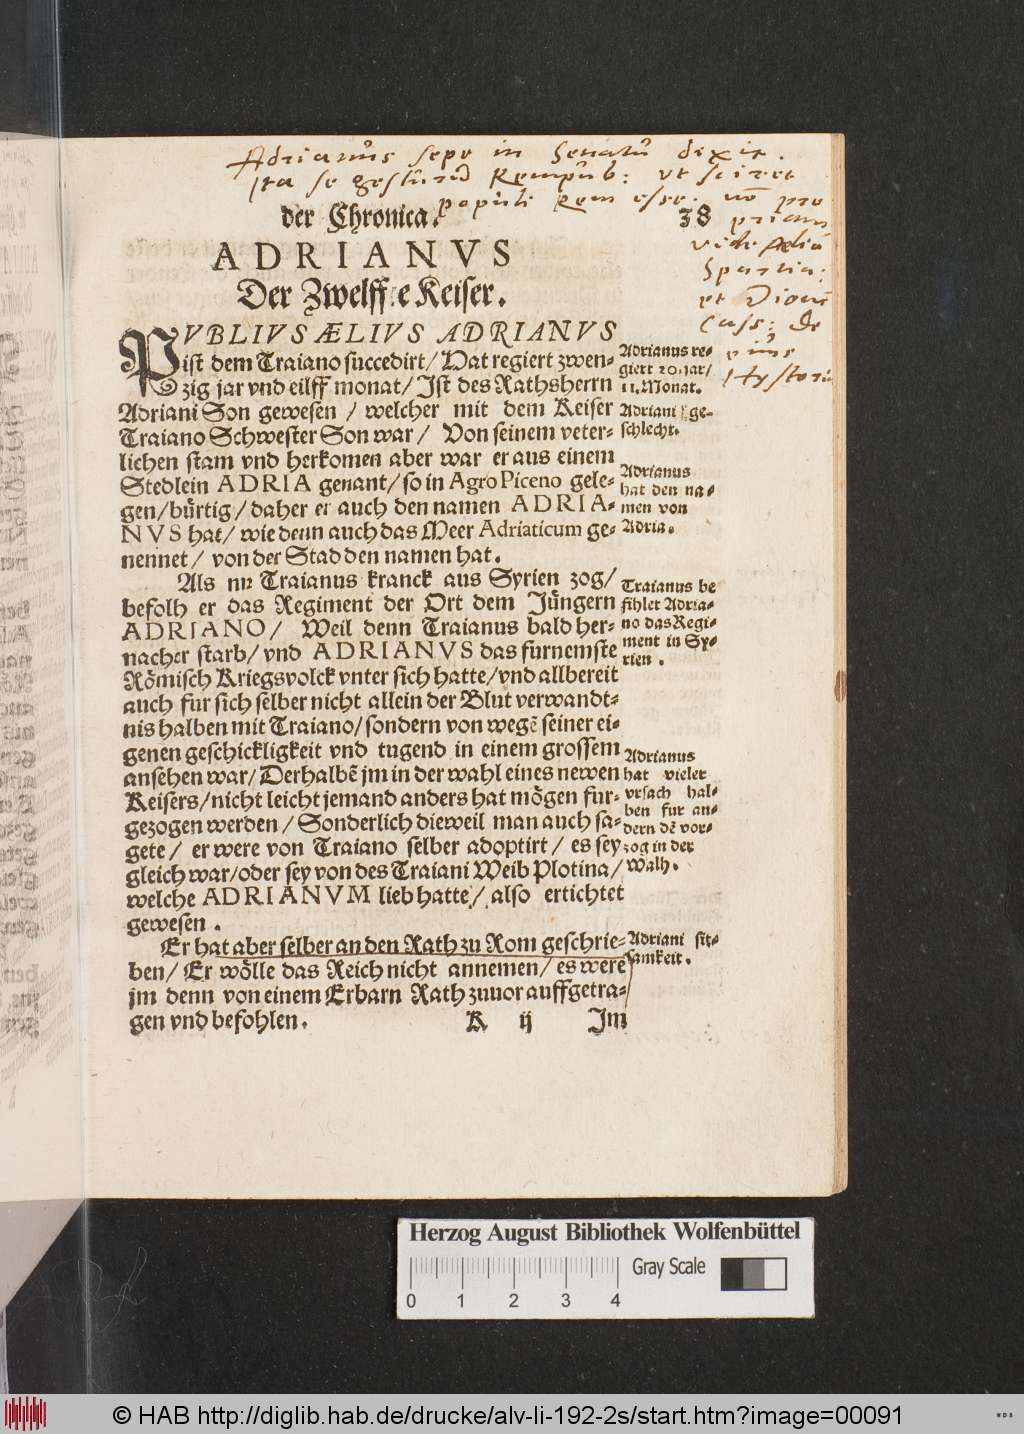 Adrianus sepe in Senatu dixit.
Ita se gesturū Rempub: ut sciret
populi Rem esse. nō pro
priam
vide Æliū
Spartia:
et Dionē
Cass: de
eius
Hystoria
der Chronica.
38
ADRIANVS
Der Zwelffte Keiser.
PVBLIVS ÆLIVS ADRIANVS
ist dem Traiano succedirt/ Hat regiert zwen-
zig jar vnd eilff monat/ Ist des Rathsherrn
Adriani Son gewesen / welcher mit dem Keiser
Traiano Schwester Son war / Von seinem veter-
lichen stam vnd herkomen aber war er aus einem
Stedlein ADRIA genant/ so in Agro Piceno gele-
gen/ bürtig/ daher er auch den namen ADRIA-
NVS hat/ wie denn auch das Meer Adriaticum ge-
nennet / von der Stad den namen hat.
Als nu Traianus kranck aus Syrien zog/
befolh er das Regiment der Ort dem Jüngern
ADRIANO/ Weil denn Traianus bald her-
nacher starb/ vnd ADRIANVS das fürnemste
Römisch Kriegsvolck vnter sich hatte/ vnd allbereit
auch für sich selber nicht allein der Blut verwandt-
nis halben mit Traiano/ sondern von wegē seiner ei-
genen geschickligkeit vnd tugend in einem grossem
ansehen war/ Derhalbē jm in der wahl eines newen
Keisers/ nicht leicht jemand anders hat mögen für-
gezogen werden / Sonderlich dieweil man auch sa-
gete / er were von Traiano selber adoptirt / es sey
gleich war/ oder sey von des Traiani Weib Plotina/
welche ADRIANVM lieb hatte/ also ertichtet
gewesen .
Er hat aber selber an den Rath zu Rom geschrie-
ben/ Er wölle das Reich nicht annemen/ es were
jm denn von einem Erbarn Rath zuuor auffgetra-
gen vnd befohlen.
K ij Im
Adrianus re-
giert 20. Jar/
11. Monat.
Adriani ge-
schlecht.
Adrianus
hat den na-
men von
Adria.
Traianus be
fihlet Adria-
no das Regi-
ment in Sy-
rien .
Adrianus
hat vieler
vrsach hal-
ben für an-
dern dē vor-
zog in der
Walh.
Adriani sit-
samkeit.
Herzog August Bibliothek Wolfenbüttel
Gray Scale
0 1 2 3 4
© HAB http://diglib.hab.de/drucke/alv-li-192-2s/start.htm?image=00091